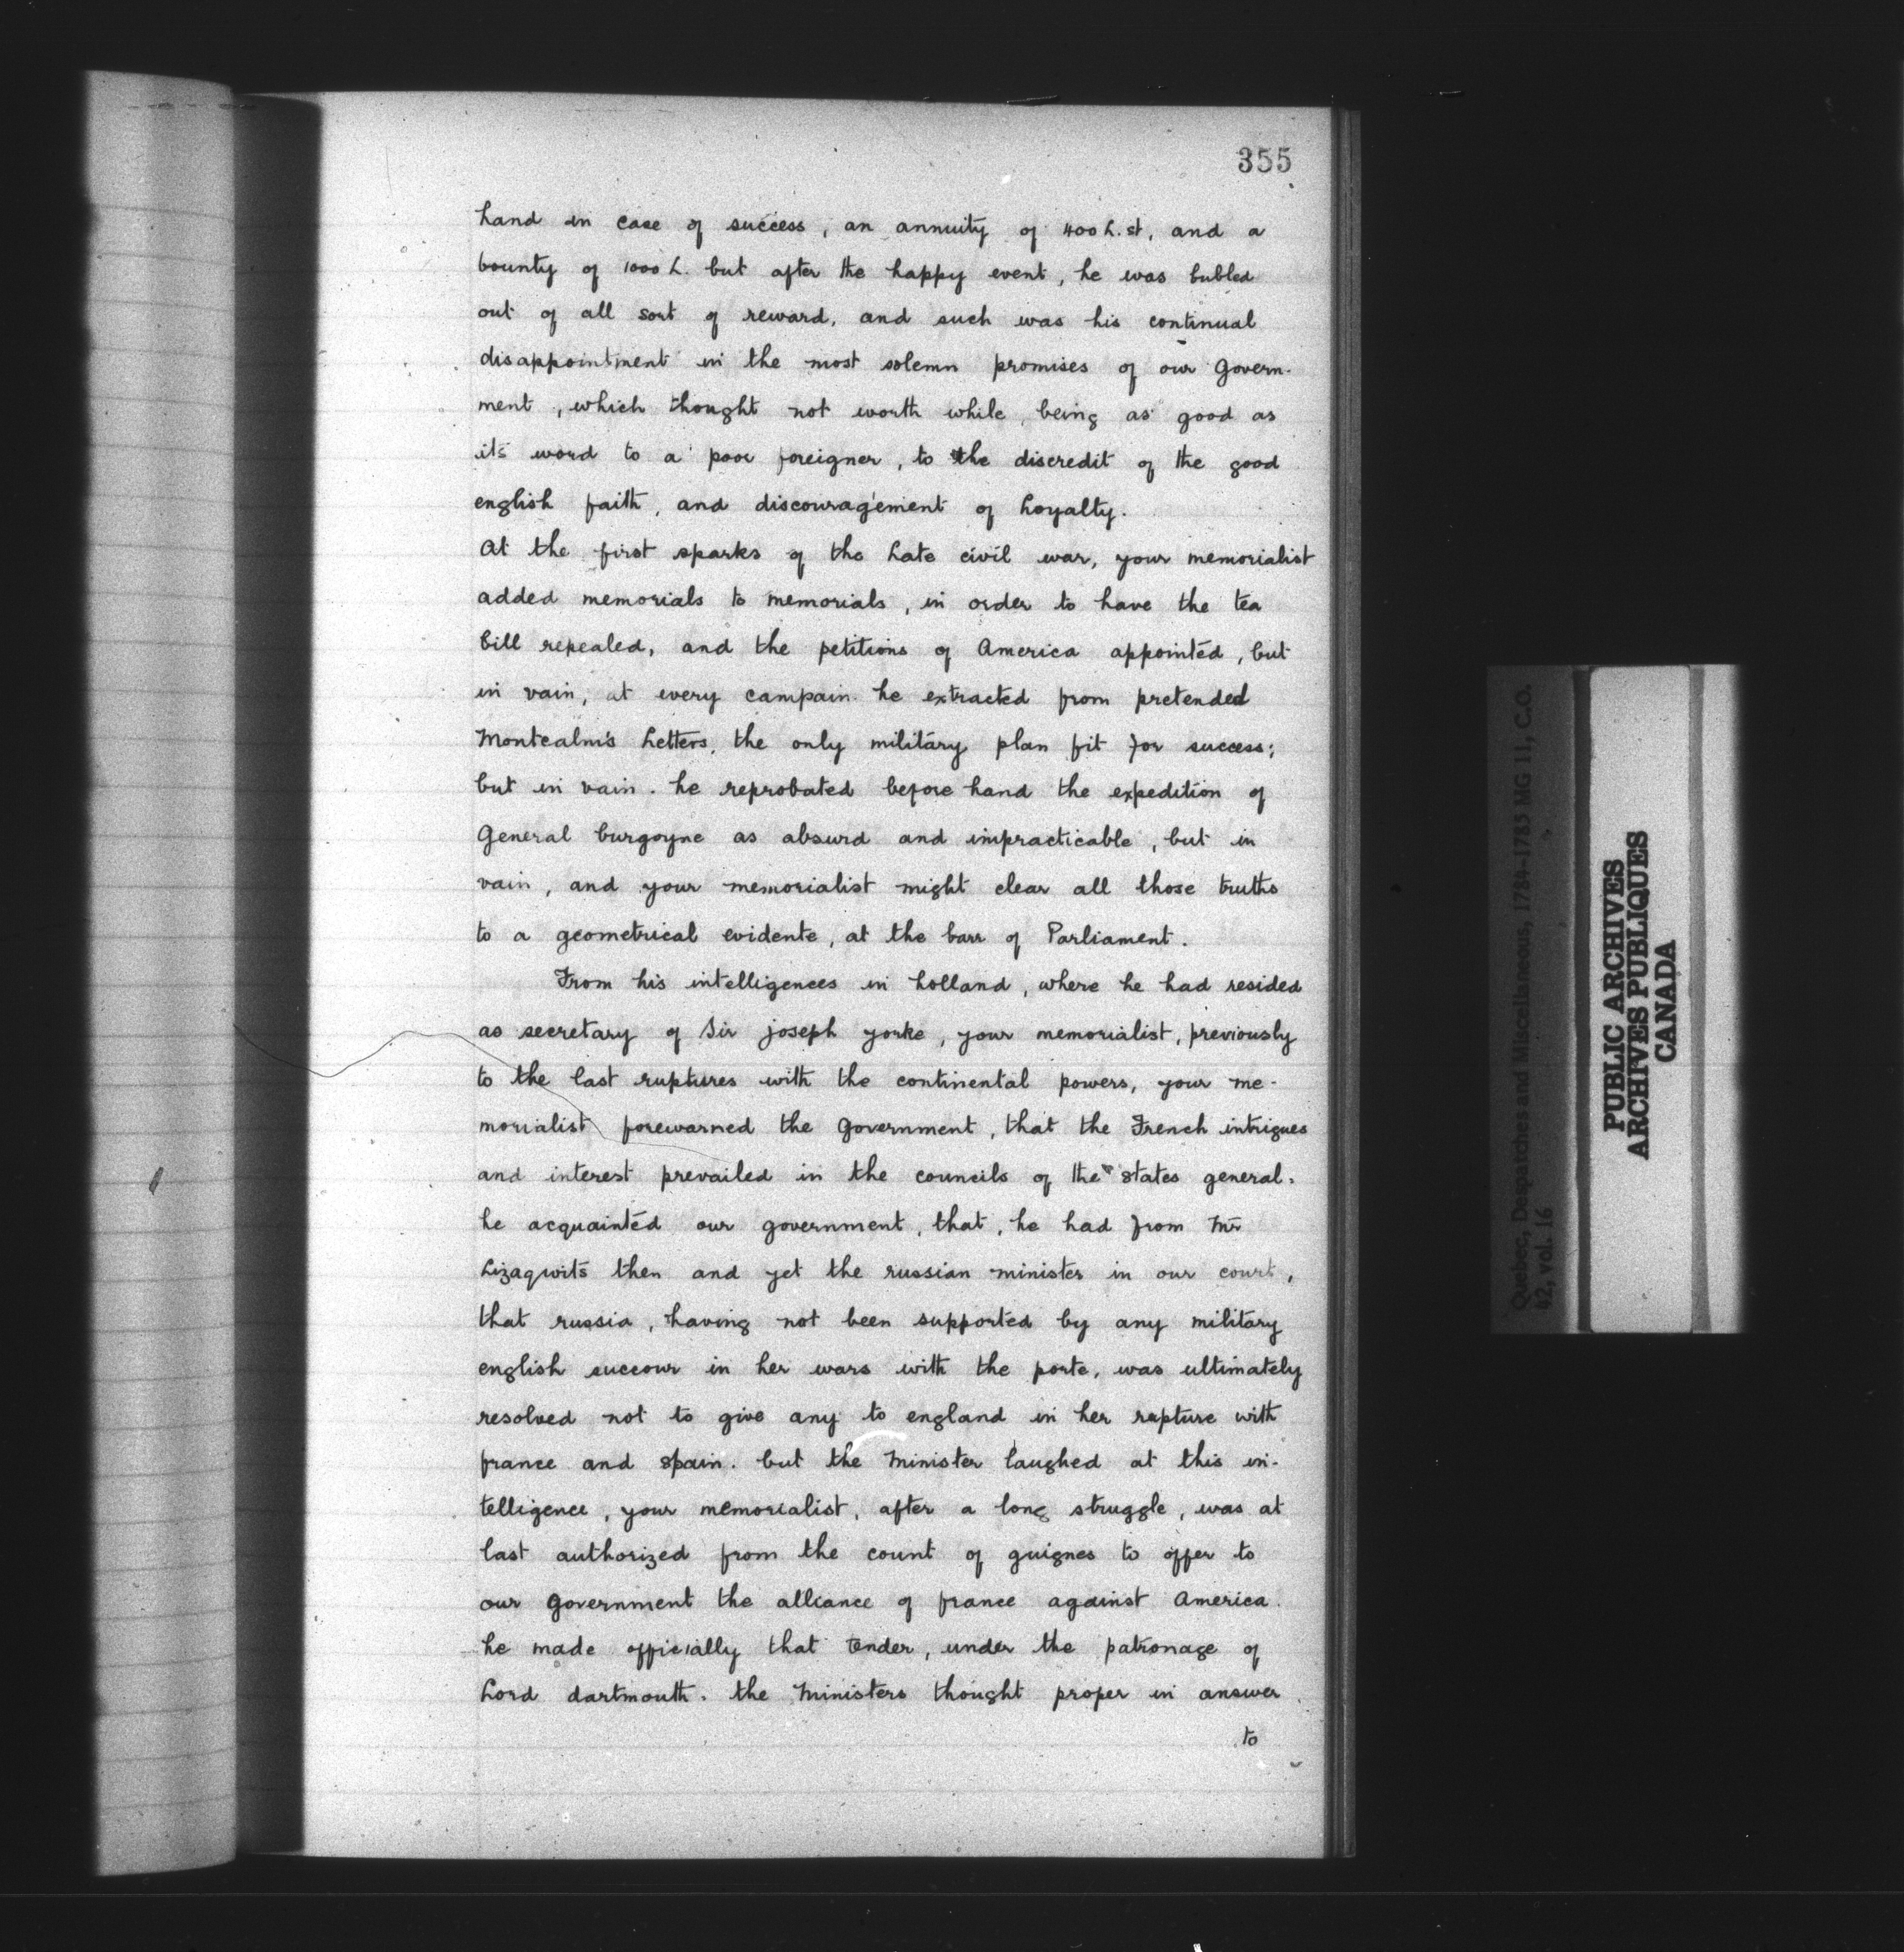 355
hand in case of success, an annuity of 400 L. st, and a
bounty of 1000 L. but after the happy event, he was bubled
out of all sort of reward, and such was his continual
disappointment in the most solemn promises of our govern-
ment, which thought not worth while, being as good as
its word to a poor foreigner, to the discredit of the good
english faith, and discouragement of Loyalty.
At the first sparks of the Late civil war, your memorialist
added memorials to memorials, in order to have the tea
bill repealed, and the petitions of America appointed, but
in vain, at every campain he extracted from pretended
Montcalm's Letters, the only military plan fit for success;
but in vain. he reprobated before hand the expedition of
General burgoyne as absurd and impracticable, but in
vain, and your memorialist might clear all those truths
to a geometrical evidente, at the barr of Parliament.
From his intelligences in holland, where he had resided
as secretary of Sir joseph yorke, your memorialist, previously
to the last ruptures with the continental powers, your me-
morialist forewarned the government, that the French intrigues
and interest prevailed in the councils of the states general.
he acquainted our government, that, he had from Mr
Lizaqwits then and yet the russian minister in our court,
that russia, having not been supported by any military
english succour in her wars with the porte, was ultimately
resolved not to give any to england in her rupture with
france and spain. but the Minister laughed at this in-
telligence, your memorialist, after a long struggle, was at
last authorized from the count of guignes to offer to
our government the alliance of france against America.
he made officially that tender, under the patronage of
Lord dartmouth. the Ministers thought proper in answer
to
Quebec, Despatches and Miscellaneous, 1784-1785 MG 11, C.O.
42, vol. 16
PUBLIC ARCHIVES
ARCHIVES PUBLIQUES
CANADA